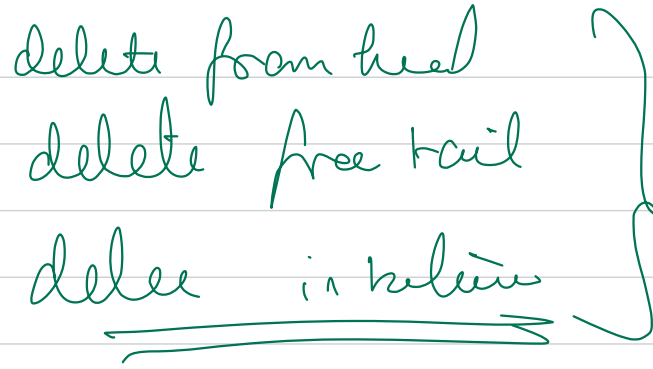 delete from head
delete free tail
delee in between